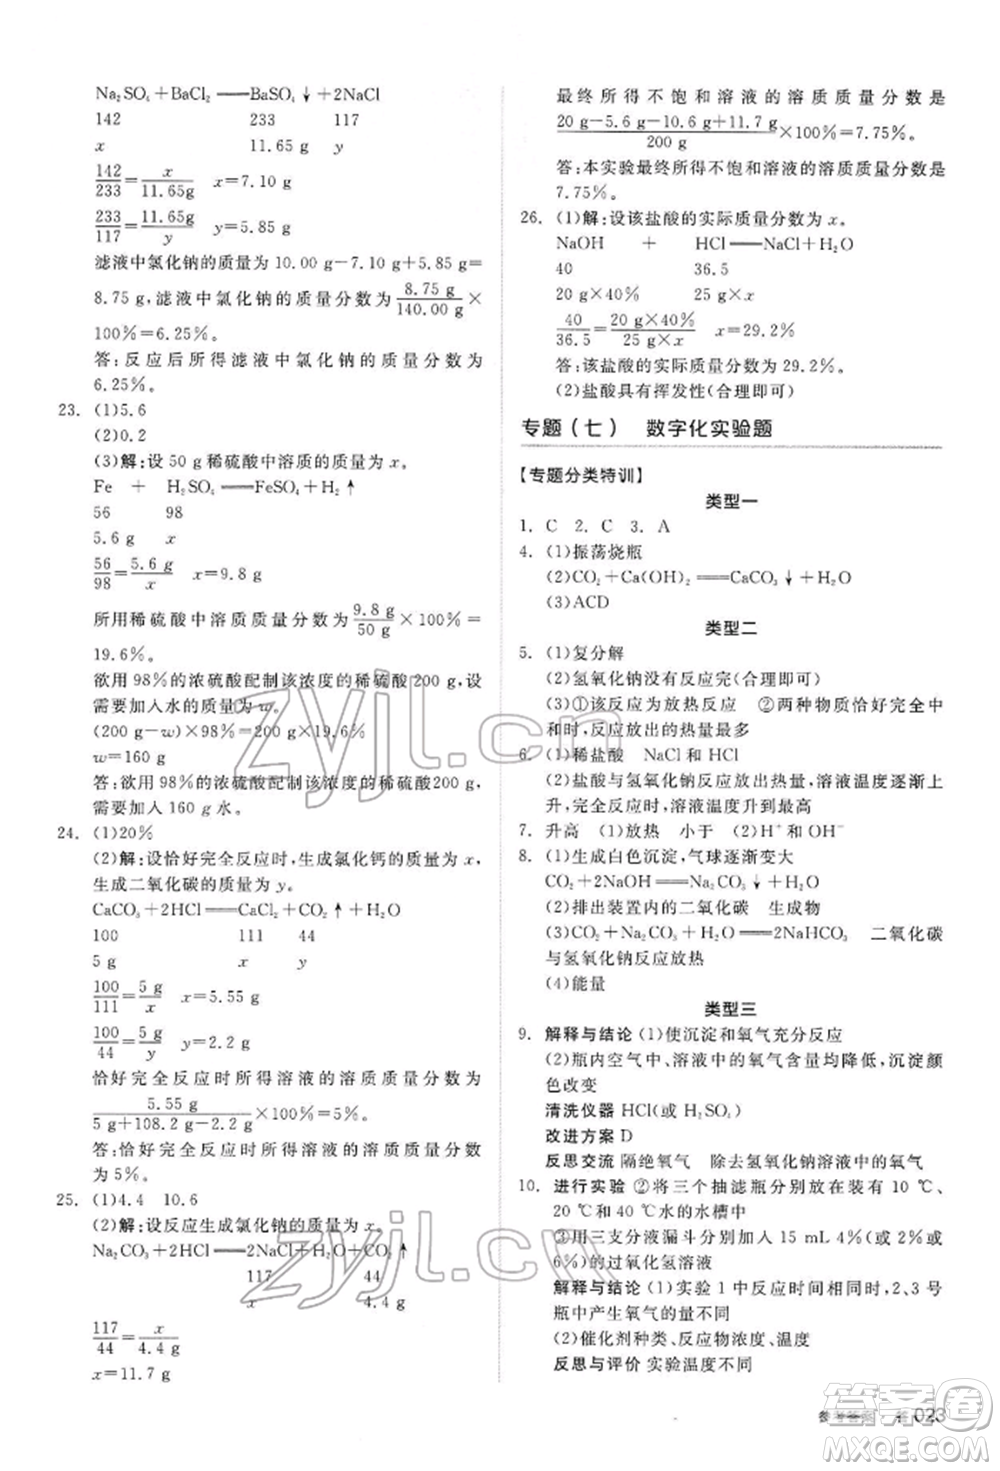 Na₂SO₄+BaCl₂══BaSO₄↓+2NaCl
142 233 117
x 11.65 g y
142/233=x/11.65g x=7.10 g
233/117=11.65 g/y y=5.85 g
滤液中氯化钠的质量为 10.00 g-7.10 g+5.85 g=
8.75 g,滤液中氯化钠的质量分数为 8.75 g/140.00 g×
100%=6.25%。
答:反应后所得滤液中氯化钠的质量分数为
6.25%。
23. (1)5.6
(2)0.2
(3)解:设 50 g稀硫酸中溶质的质量为 x。
Fe + H₂SO₄══FeSO₄+H₂↑
56 98
5.6 g x
56/98=5.6 g/x x=9.8 g
所用稀硫酸中溶质质量分数为 9.8 g/50 g×100%=
19.6%。
欲用 98%的浓硫酸配制该浓度的稀硫酸 200 g,设
需要加入水的质量为 w。
(200 g-w)×98%=200 g×19.6%
w=160 g
答:欲用 98%的浓硫酸配制该浓度的稀硫酸200 g,
需要加入 160 g 水。
24. (1)20%
(2)解:设恰好完全反应时,生成氯化钙的质量为 x,
生成二氧化碳的质量为 y。
CaCO₃+2HCl══CaCl₂+CO₂↑+H₂O
100 111 44
5 g x y
100/111=5 g/x x=5.55 g
100/44=5 g/y y=2.2 g
恰好完全反应时所得溶液的溶质质量分数为
5.55 g/(5 g+108.2 g-2.2 g)×100%=5%。
答:恰好完全反应时所得溶液的溶质质量分数
为 5%。
25. (1)4.4 10.6
(2)解:设反应生成氯化钠的质量为 x。
Na₂CO₃+2HCl══2NaCl+H₂O+CO₂↑
117 44
x 4.4 g
117/44=x/4.4 g
x=11.7 g
最终所得不饱和溶液的溶质质量分数是
(20 g-5.6 g-10.6 g+11.7 g)/200 g×100%=7.75%。
答:本实验最终所得不饱和溶液的溶质质量分数为
7.75%。
26. (1)解:设该盐酸的实际质量分数为 x。
NaOH + HCl══NaCl+H₂O
40 36.5
20 g×40% 25 g×x
40/36.5=20 g×40%/25 g×x x=29.2%
答:该盐酸的实际质量分数为 29.2%。
(2)盐酸具有挥发性(合理即可)
专题(七) 数字化实验题
【专题分类特训】
类型一
1. C 2. C 3. A
4. (1)振荡烧瓶
(2)CO₂+Ca(OH)₂══CaCO₃↓+H₂O
(3)ACD
类型二
5. (1)复分解
(2)氢氧化钠没有反应完(合理即可)
(3)①该反应为放热反应 ②两种物质恰好完全中
和时,反应放出的热量最多
6. (1)稀盐酸 NaCl 和 HCl
(2)盐酸与氢氧化钠反应放出热量,溶液温度逐渐上
升,完全反应时,溶液温度升到最高
7. 升高 (1)放热 小于 (2)H⁺和 OH⁻
8. (1)生成白色沉淀,气球逐渐变大
CO₂+2NaOH══Na₂CO₃+H₂O
(2)排出装置内的二氧化碳 生成物
(3)CO₂+Na₂CO₃+H₂O══2NaHCO₃ 二氧化碳
与氢氧化钠反应放热
(4)能量
类型三
9. 解释与结论 (1)使沉淀和氧气充分反应
(2)瓶内空气中、溶液中的氧气含量均降低,沉淀颜
色改变
清洗仪器 HCl(或 H₂SO₄)
改进方案 D
反思交流 隔绝氧气 除去氢氧化钠溶液中的氧气
10. 进行实验 ②将三个抽滤瓶分别放在装有 10 ℃、
20 ℃和 40 ℃水的水槽中
③用三支分液漏斗分别加入 15 mL 4%(或5%或
6%)的过氧化氢溶液
解释与结论 (1)实验 1 中反应时间相同时,2、3 号
瓶中产生氧气的量不同
(2)催化剂种类、反应物浓度、温度
反思与评价 实验温度不同
参考答案 答 023
zyjl.cn
zyjl.cn
答案圈
MXQE.COM